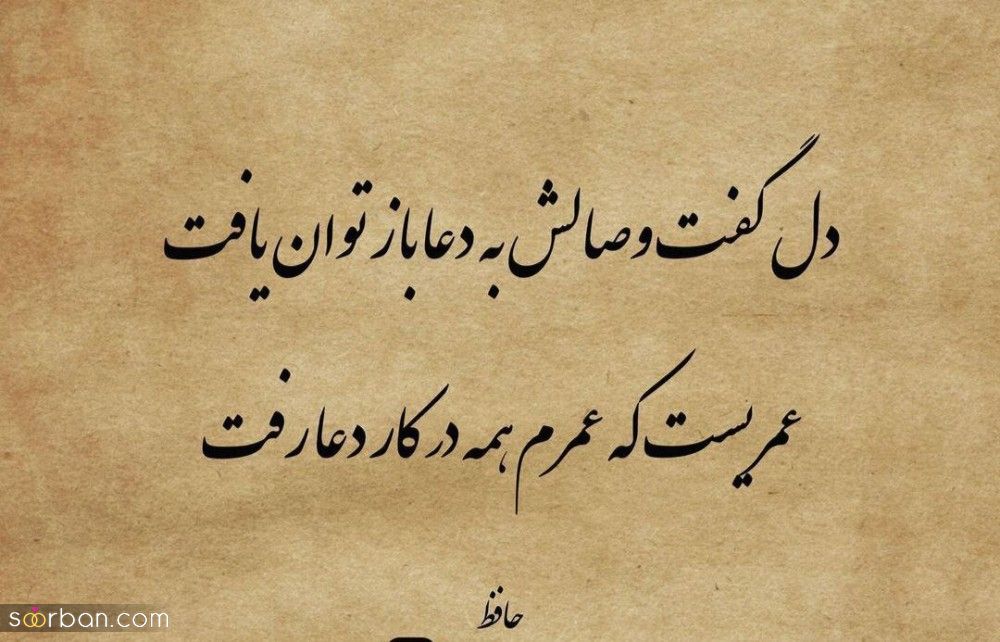 دل گفت وصالش به دعا باز توان یافت
عمریست که عمرم همه در کار دعا رفت
حافظ
soorban.com